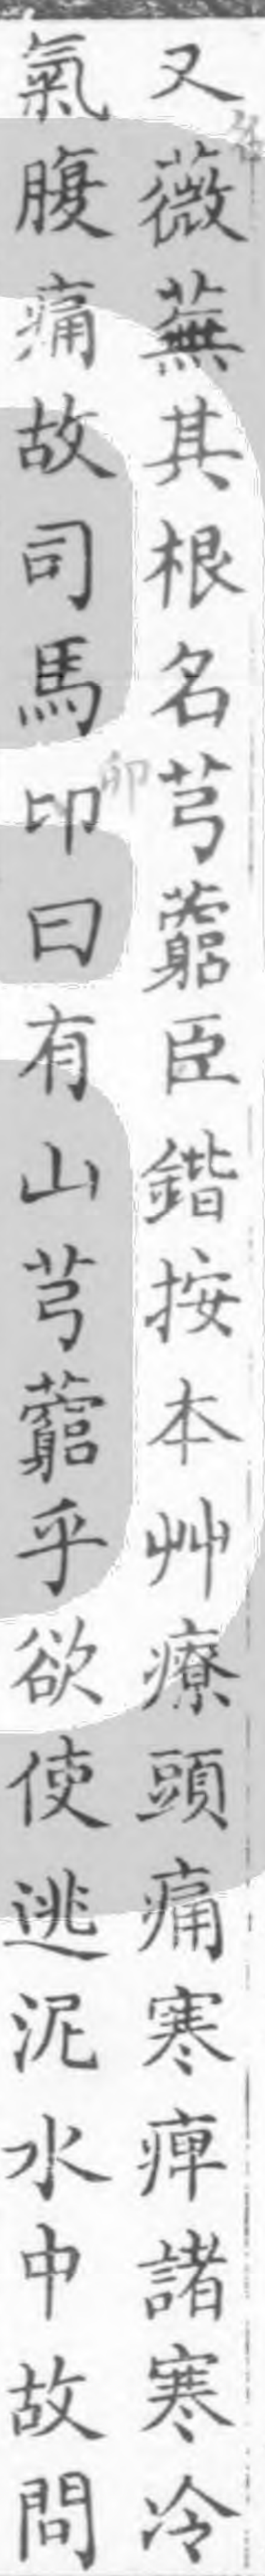 又薇蕪其根名芎藭臣鍇按本艸療頭痛寒痺諸寒冷
氣腹痛故司馬卬曰有山芎藭乎欲使逃泥水中故問